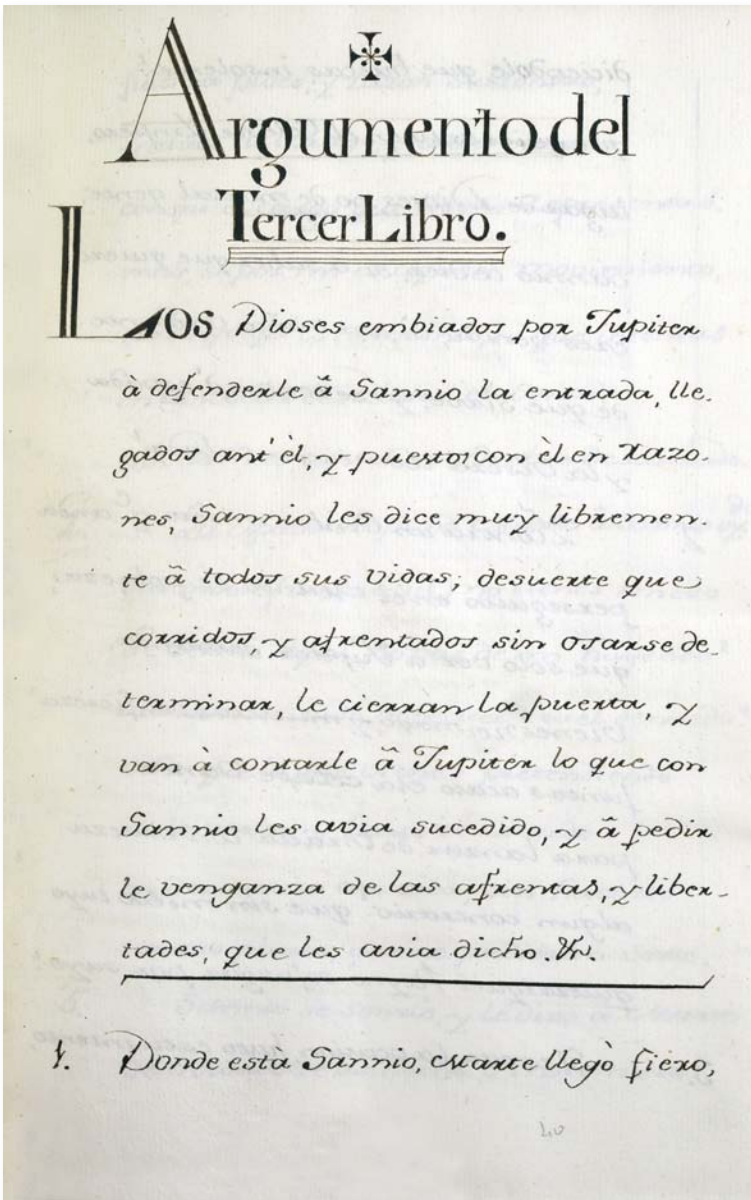 Argumento del
Tercer Libro.
Los Dioses embiados por Jupiter
à defenderle â Sannio la entrada, lle-
gados ant' èl, y puestos con èl en razo-
nes, Sannio les dice muy libremen-
te â todos sus vidas; desuerte que
corridos, y afrentados sin osarse de-
terminar, le cierran la puerta, y
van à contarle â Jupiter lo que con
Sannio les avia sucedido, y â pedir
le venganza de las afrentas, y liber-
tades, que les avia dicho. Vr.
1. Donde està Sannio, Marte llegò fiero,
40